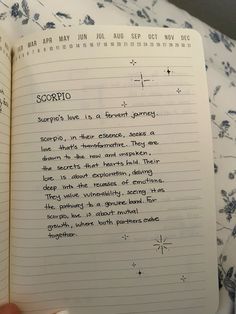 MAR APR MAY JUN JUL AUG SEP OCT NOV DEC
SCORPIO
Scorpio's love is a fervent journey.
Scorpio, in their essence, seeks a
love that's transformative. They are
drawn to the raw and unspoken,
the secrets that hearts hold. Their
love is about exploration, delving
deep into the recesses of emotions.
They value vulnerability, seeing it as
the pathway to a genuine bond. For
Scorpio, love is about mutual
growth, where both partners evolve
together.